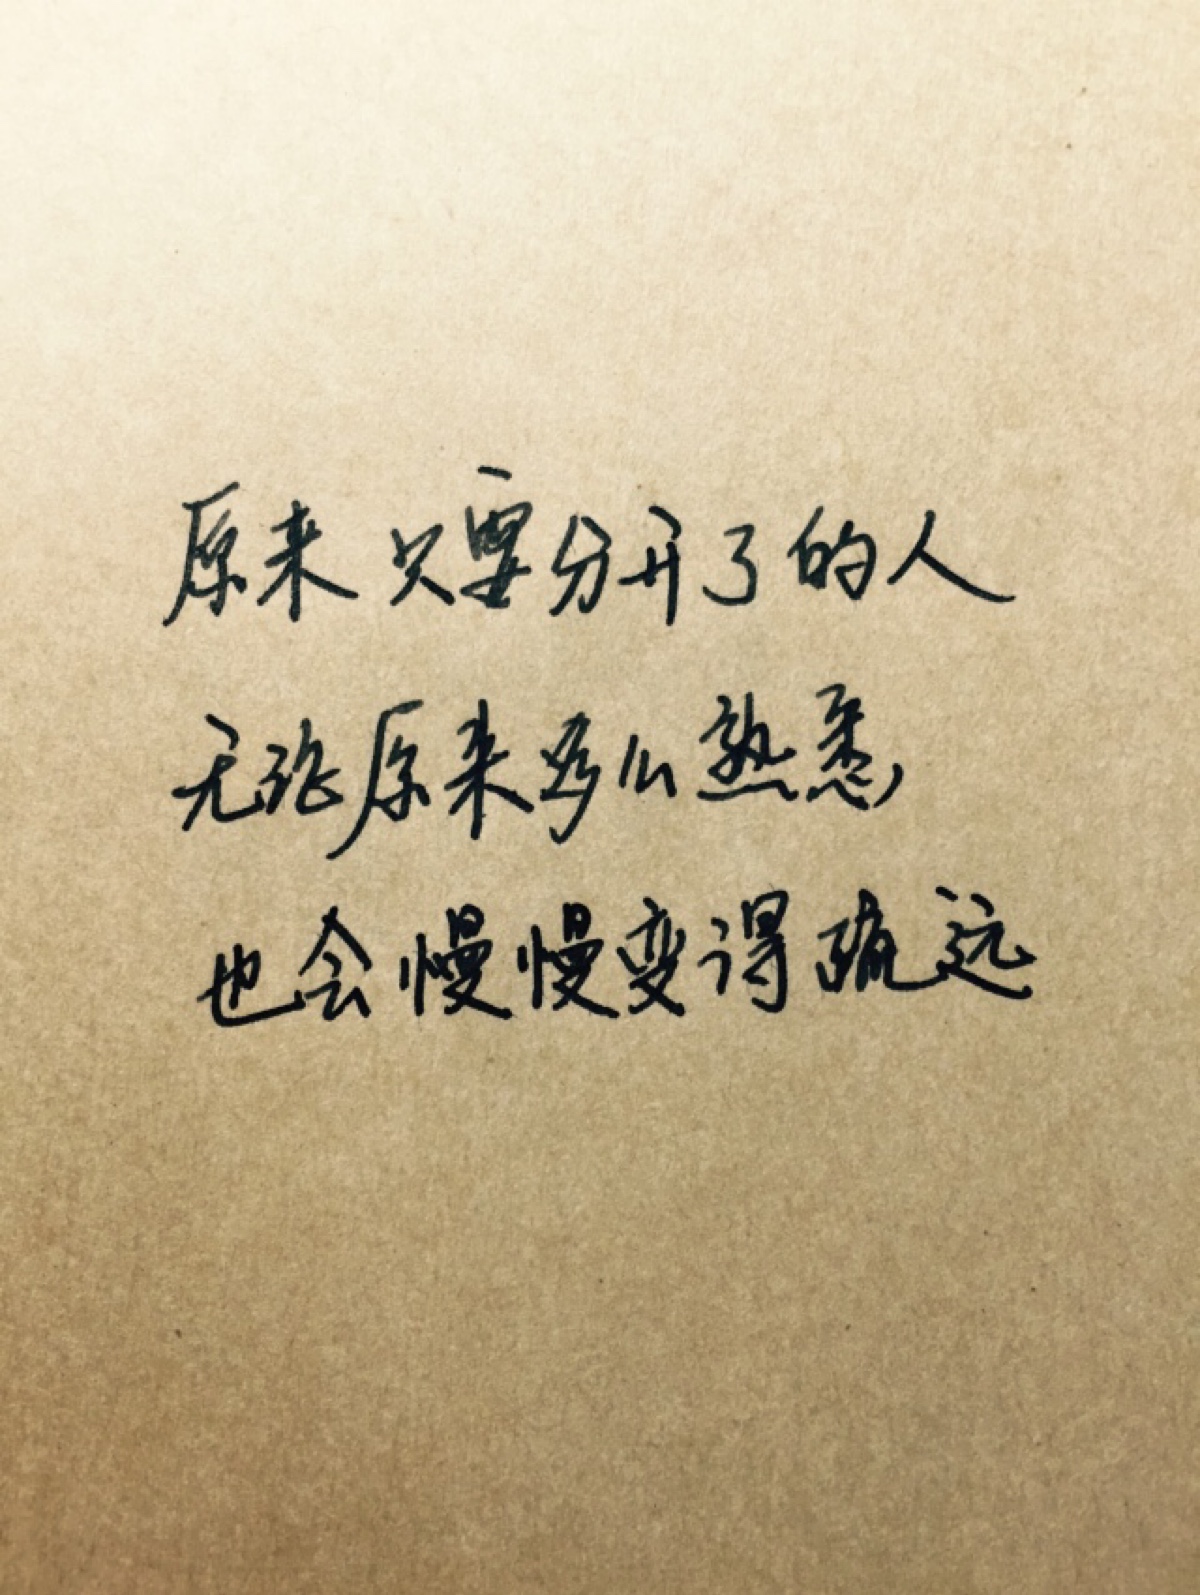 原来只要分开了的人
无论原来多么熟悉,
也会慢慢变得疏远